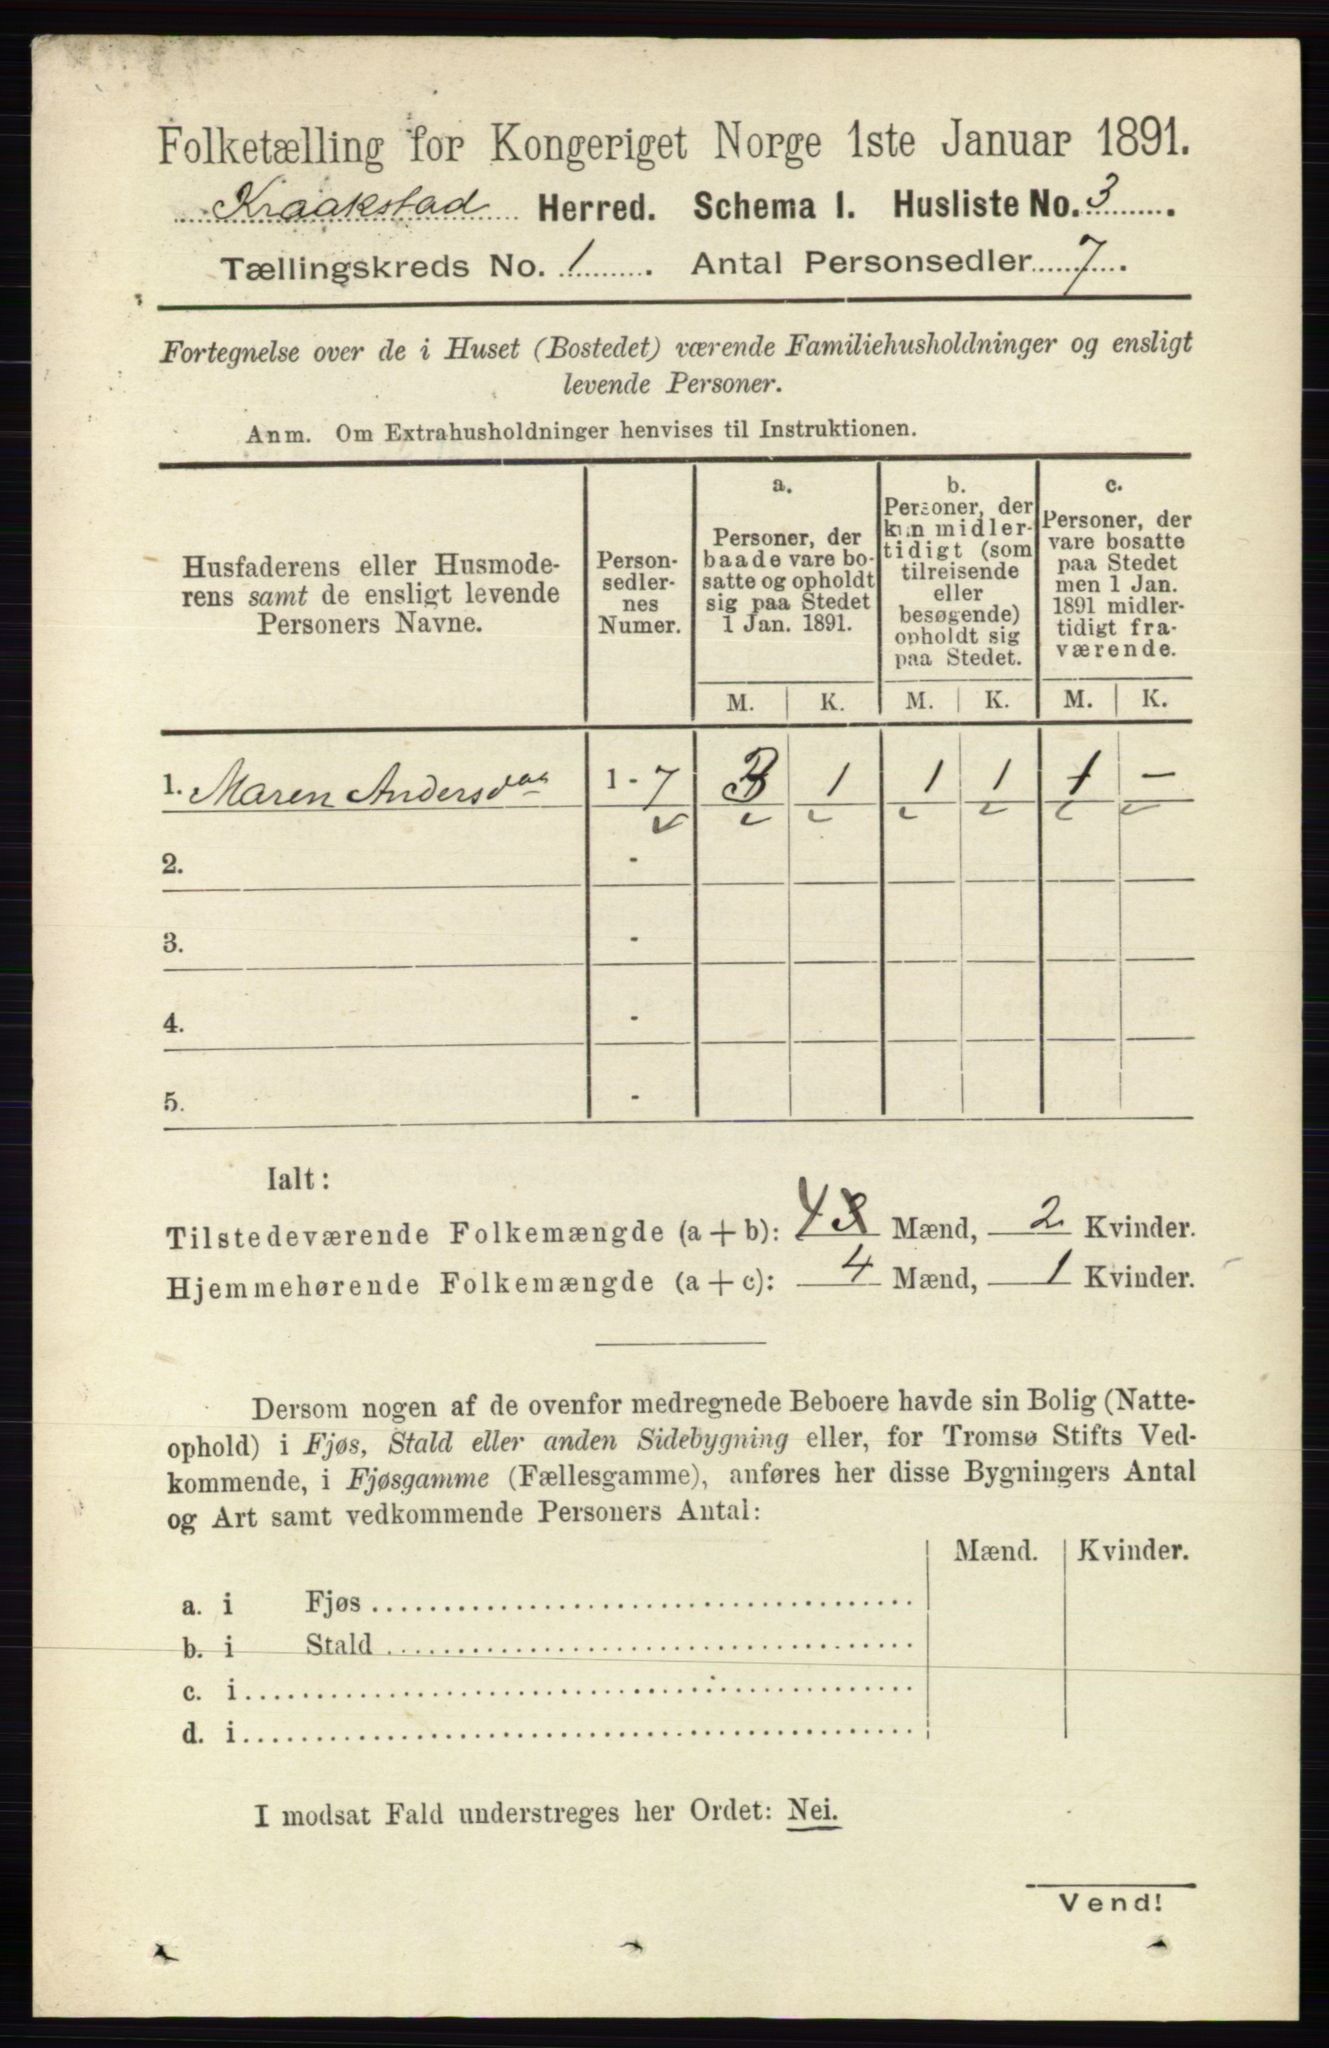 Folketælling for Kongeriget Norge 1ste Januar 1891.
Kraakstad Herred. Schema 1. Husliste No. 3.
Tællingskreds No. 1. Antal Personsedler 7.
Fortegnelse over de i Huset (Bostedet) værende Familiehusholdninger og ensligt
levende Personer.
Anm. Om Extrahusholdninger henvises til Instruktionen.
Husfaderens eller Husmode-
rens samt de ensligt levende
Personers Navne.
Person-
sedler-
nes
Numer.
a.
Personer, der
baade vare bo-
satte og opholdt
sig paa Stedet
1 Jan. 1891.
b.
Personer, der
kun midler-
tidigt (som
tilreisende
eller
besøgende)
opholdt sig
paa Stedet.
c.
Personer, der
vare bosatte
paa Stedet
men 1 Jan.
1891 midler-
tidigt fra-
værende.
M. K. M. K. M. K.
1. Maren Andersdat 1 - 7 3 1 1 1 1 -
2. -
3. -
4. -
5. -
Ialt:
Tilstedeværende Folkemængde (a + b): 4 Mænd, 2 Kvinder.
Hjemmehørende Folkemængde (a + c): 4 Mænd, 1 Kvinder.
Dersom nogen af de ovenfor medregnede Beboere havde sin Bolig (Natte-
ophold) i Fjøs, Stald eller anden Sidebygning eller, for Tromsø Stifts Ved-
kommende, i Fjøsgamme (Fællesgamme), anføres her disse Bygningers Antal
og Art samt vedkommende Personers Antal:
Mænd. Kvinder.
a. i Fjøs
b. i Stald
c. i
d. i
I modsat Fald understreges her Ordet: Nei.
Vend!